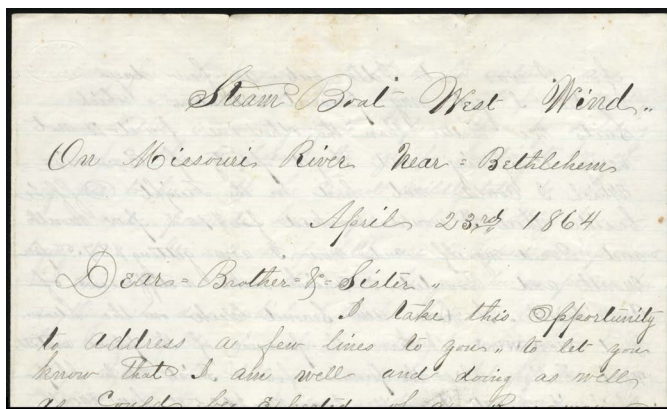 Steam Boat West Wind,,
On Missouri River Near = Bethlehem
April 23rd 1864
Dears = Brother = & = Sister,,
I take this opportunity
to address a few lines to you,, to let you
know that I am well and doing as well
as could be expected of a